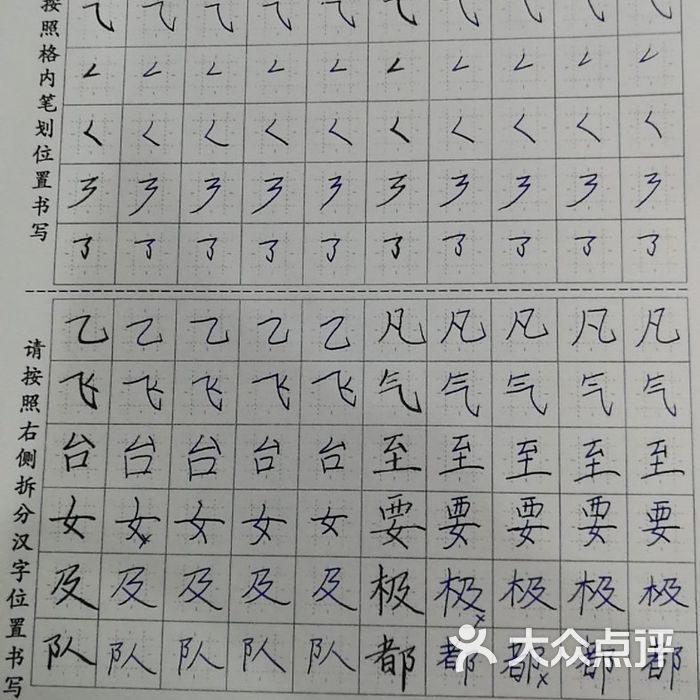 按照格内笔划位置书写
乙 乙 乙 乙 乙 凡 凡 凡 凡 凡
飞 飞 飞 飞 飞 气 气 气 气 气
台 台 台 台 台 至 至 至 至 至
女 女 女 女 女 要 要 要 要 要
及 及 及 及 及 极 极 极 极 极
队 队 队 队 队 都 都 都 都 都
请按照右侧拆分汉字位置书写
大众点评